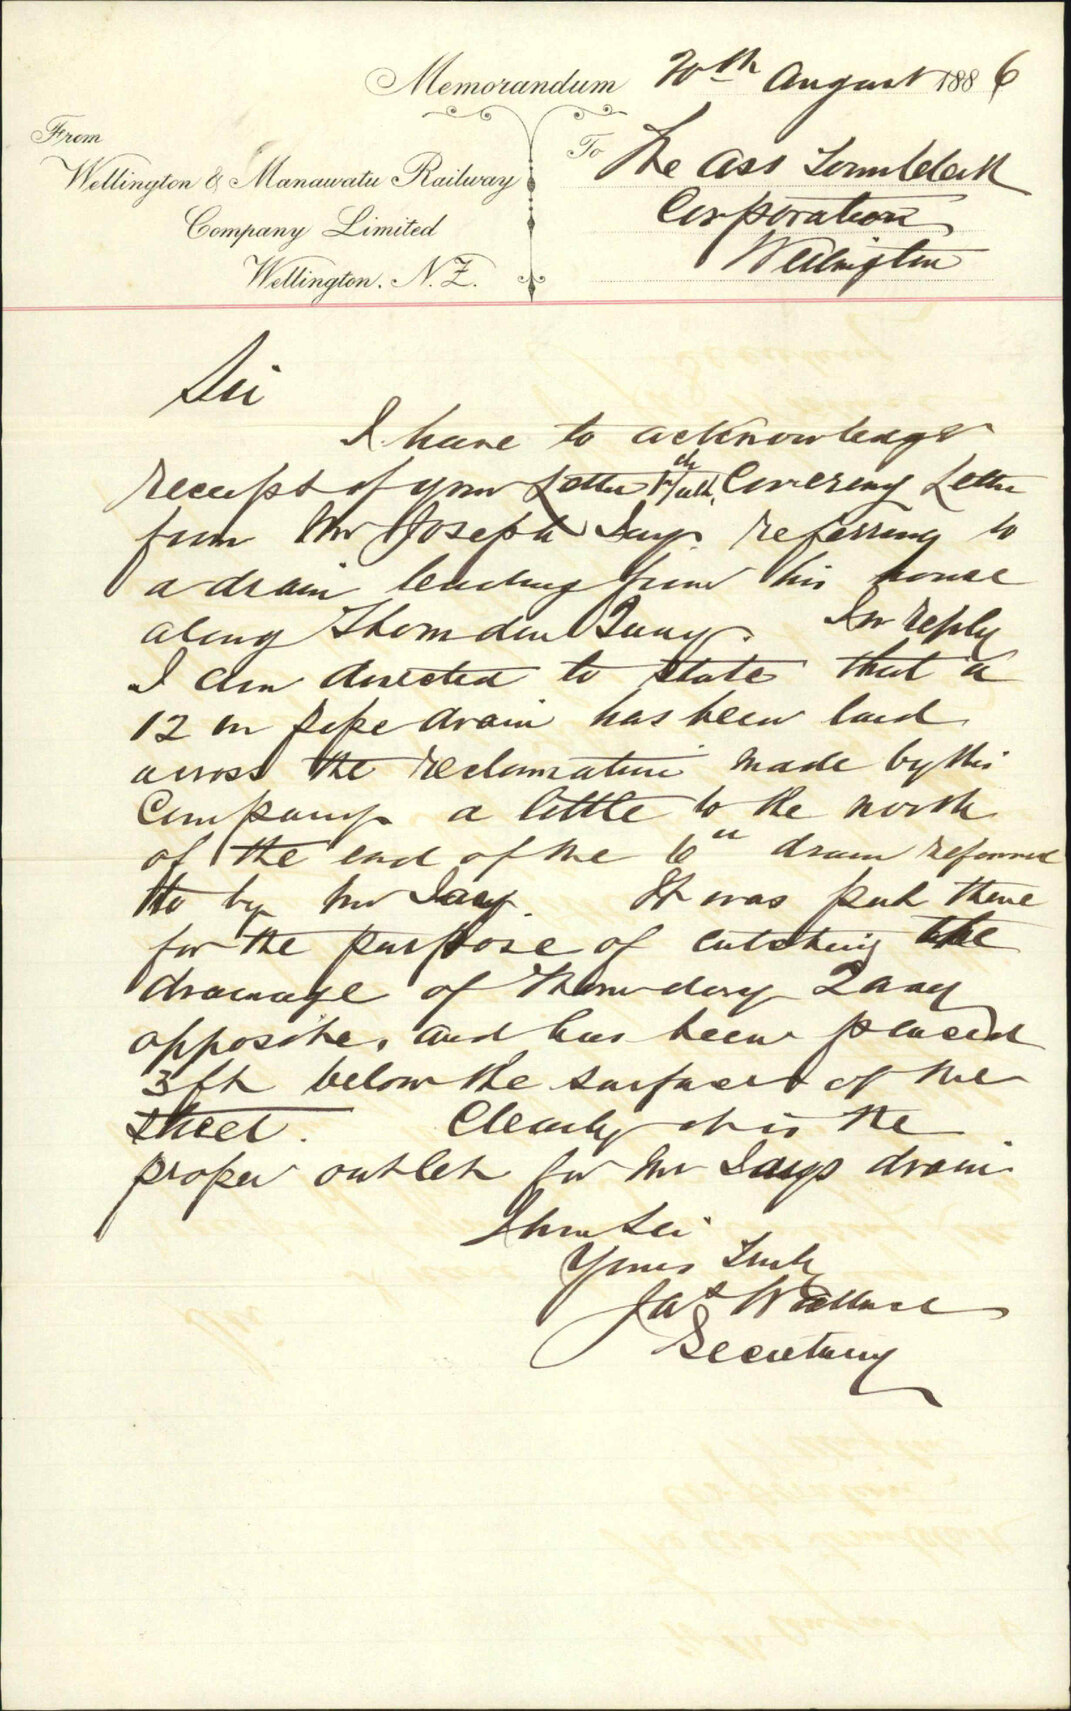 Memorandum 20th August 1886
From
Wellington & Manawatu Railway
Company Limited
Wellington. N.Z.
To The Ass Town Clerk
Corporation
Wellington
Sir
I have to acknowledge
receipt of your Letter Covering Letter
from Mr Joseph referring to
a drain leading from his house
along Thorndon Quay. In reply
I am directed to state that a
12 in pipe drain has been laid
across the reclamation made by this
Company a little to the north
of the end of the 6" drain referred
to by Mr It was put there
for the purpose of catching the
drainage of Thorndon Quay
opposite, and has been placed
3 ft below the surface of the
street. Clearly it is the
proper outlet for Mr drain
I am Sir
Yours Truly
Jas Wallace
Secretary